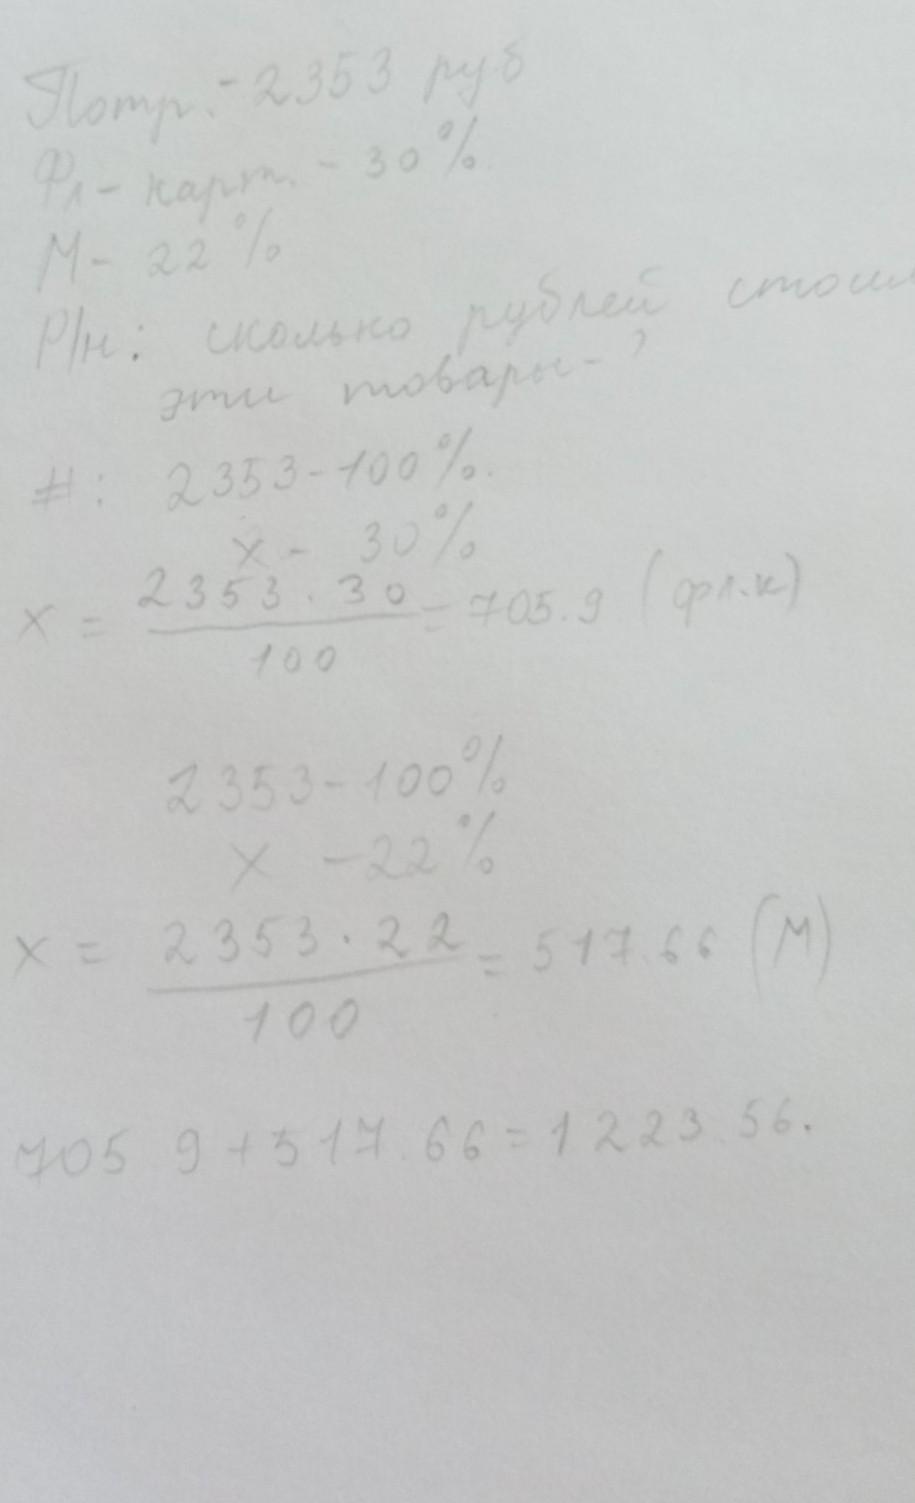 Потр.: - 2353 руб
Фл - карт. - 30%.
М - 22%
Р/н: сколько рублей стоил
эти товары - ?
#: 2353 - 100%.
х - 30%
х = 2353 · 30 / 100 = 705.9 (фл.к)
2353 - 100%
х - 22%
х = 2353 · 22 / 100 = 517.66 (М)
705.9 + 517.66 = 1223.56.